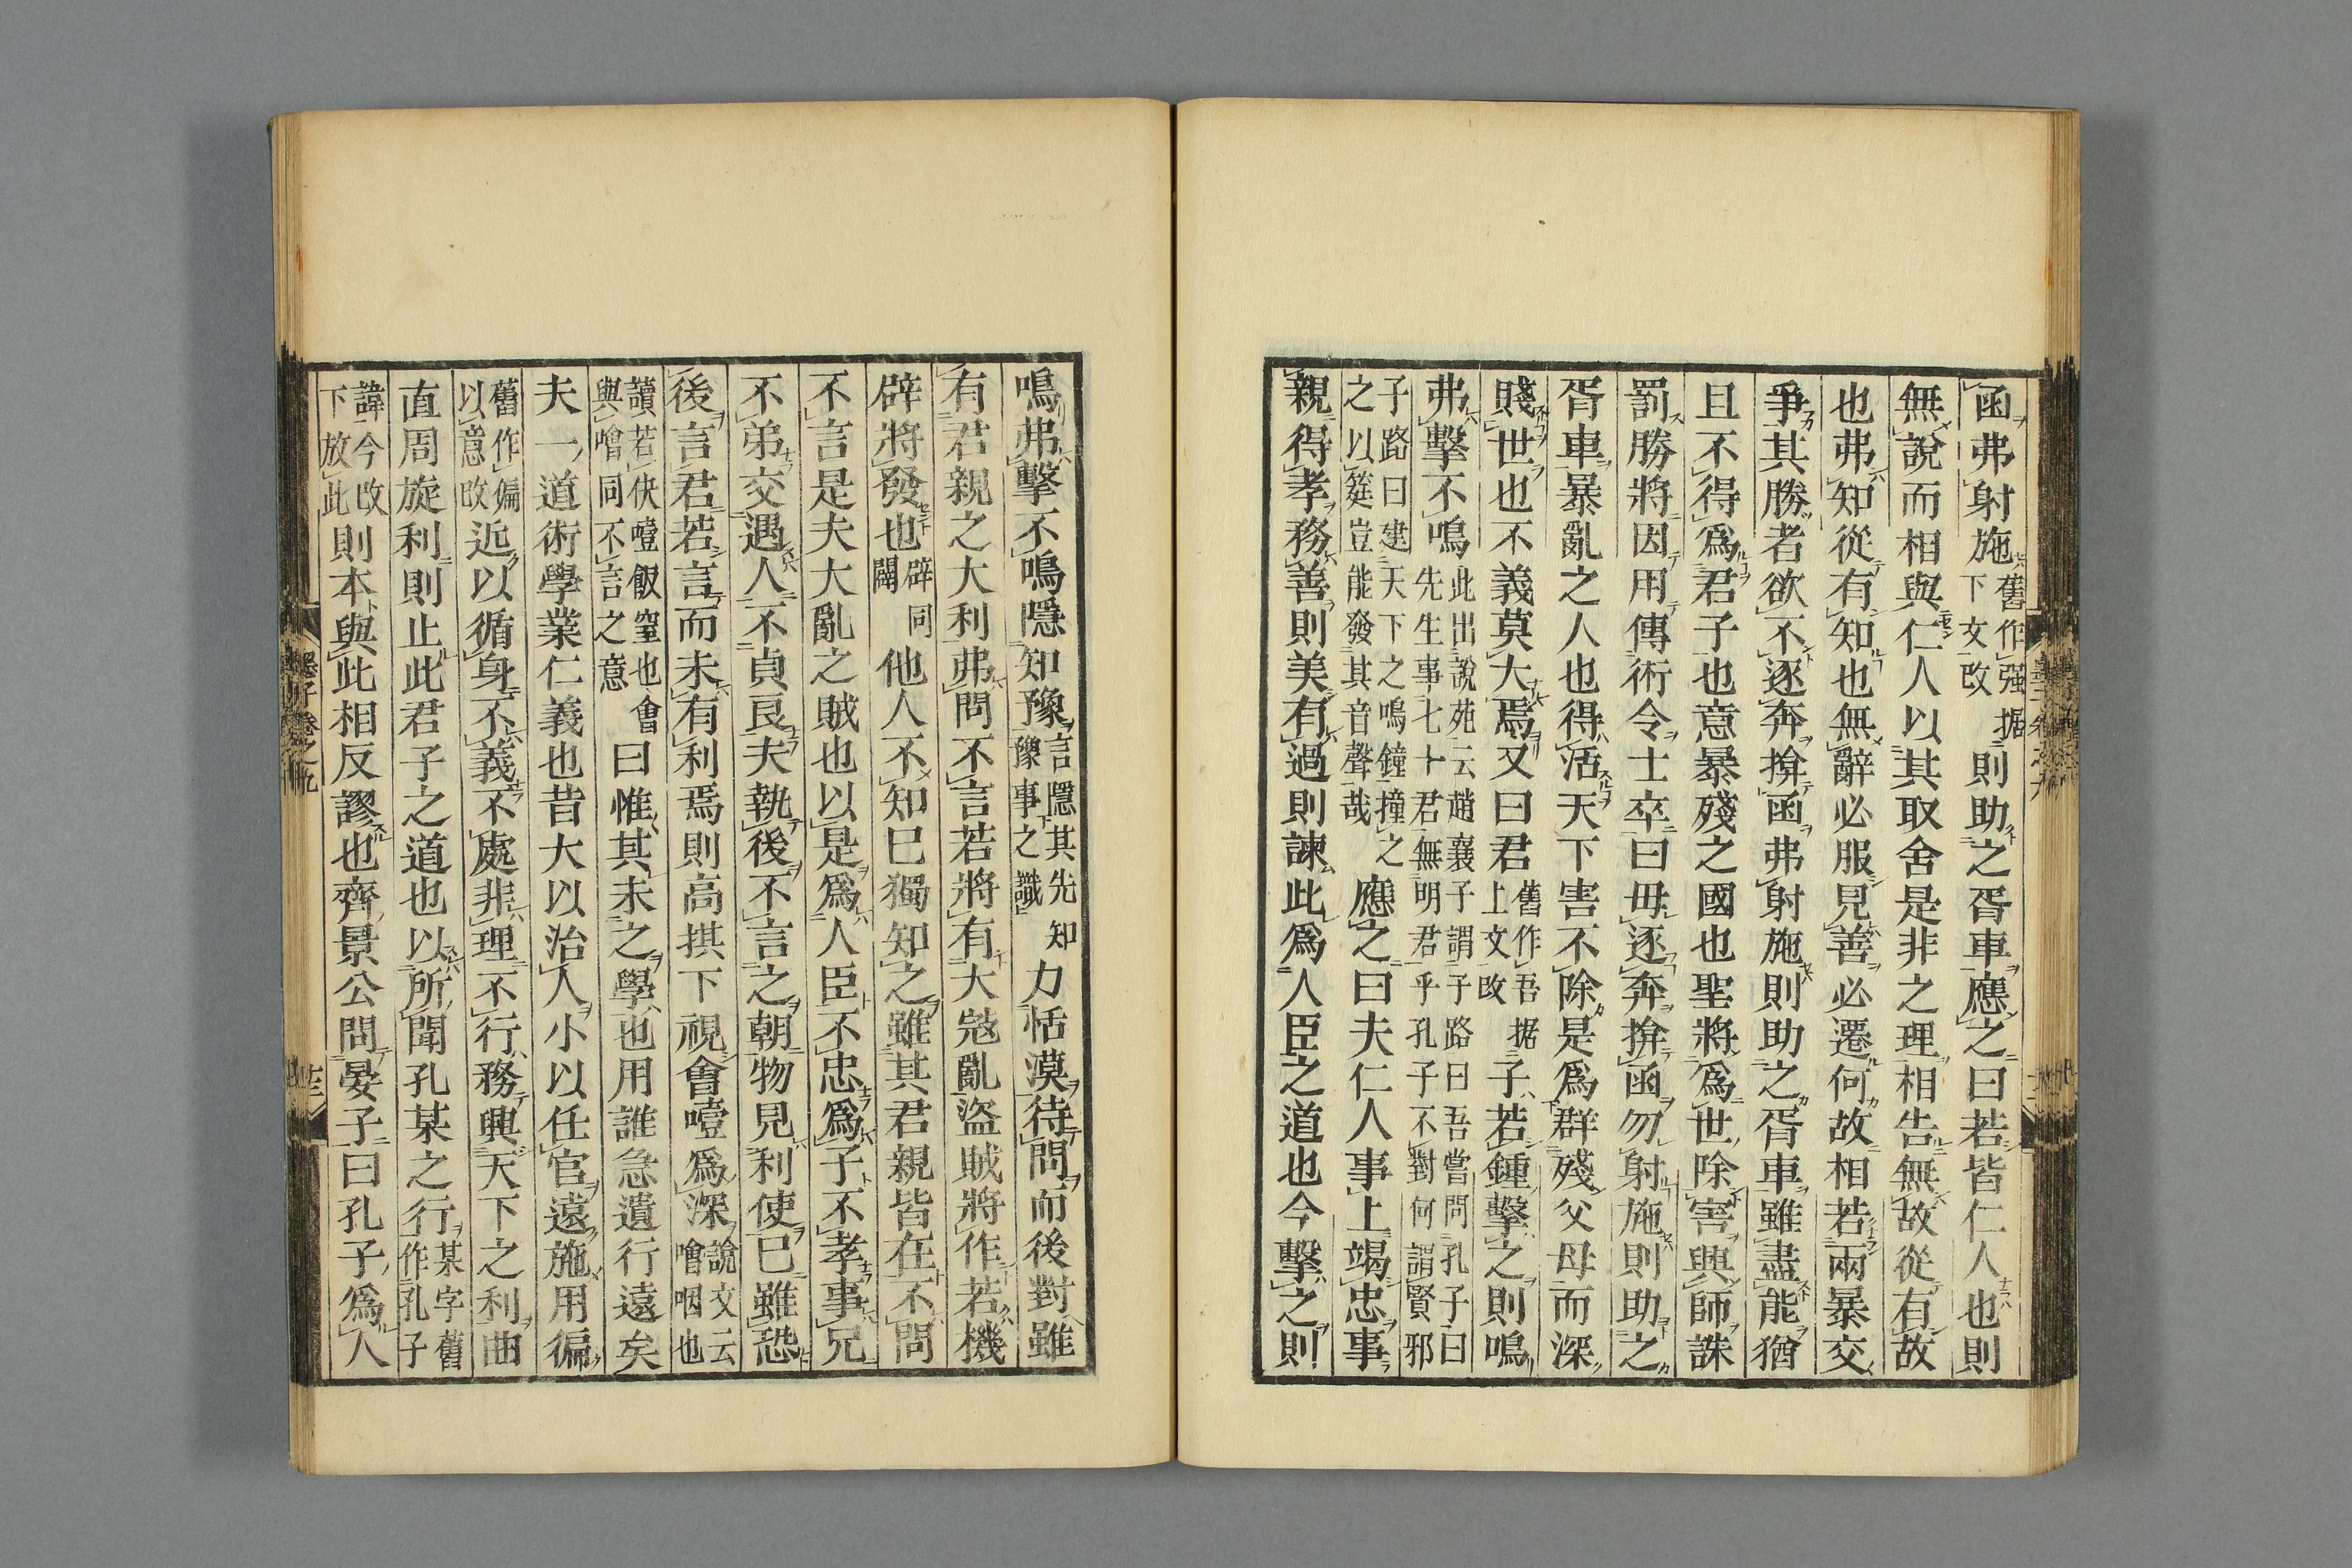 函弗射施舊作强据下文改則助之胥車應之曰若皆仁人也則
無說而相與仁人以其取舍是非之理相告無故從有故
也弗知從有知也無辭必服見善必遷何故相若兩暴交
爭其勝者欲不逐奔揜函弗射施則助之胥車雖盡能猶
且不得爲君子也意暴殘之國也聖將爲世除害興師誅
罰勝將因用傳術令士卒曰毋逐奔揜函勿射施則助之
胥車暴亂之人也得活天下害不除是爲群殘父母而深
賤世也不義莫大焉又曰君舊作吾据上文改子若鍾擊之則鳴
弗擊不鳴此出說苑云趙襄子謂子路曰吾嘗問孔子曰先生事七十君無明君乎孔子不對何謂賢邪
子路曰建天下之鳴鐘撞之以筳豈能發其音聲哉應之曰夫仁人事上竭忠事
親得孝務善則美有過則諫此爲人臣之道也今擊之則
鳴弗擊不鳴隱知豫言隱其先知豫事之識力恬漠待問而後對雖
有君親之大利弗問不言若將有大寇亂盜賊將作若機
辟將發也辟同闢他人不知已獨知之雖其君親皆在不問
不言是夫大亂之賊也以是爲人臣不忠爲子不孝事兄
不弟交遇人不貞良夫執後不言之朝物見利使已雖恐
後言君若言而未有利焉則高拱下視會噎爲深說文云噲咽也
讀若快噎飯窒也會與噲同不言之意曰惟其未之學也用誰急遺行遠矣
夫一道術學業仁義也昔大以治人小以任官遠施用徧
舊作偏以意改近以循身不義不處非理不行務興天下之利曲
直周旋利則止此君子之道也以所聞孔某之行某字舊作孔子
諱今改下放此則本與此相反謬也齊景公問晏子曰孔子爲人
墨子卷之九